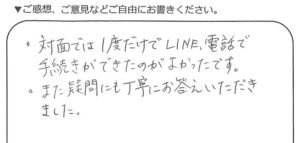 ▼ご感想、ご意見などご自由にお書きください。
・対面では1度だけでLINE,電話で
手続きができたのがよかったです。
・また疑問にも丁寧にお答えいただき
ました。